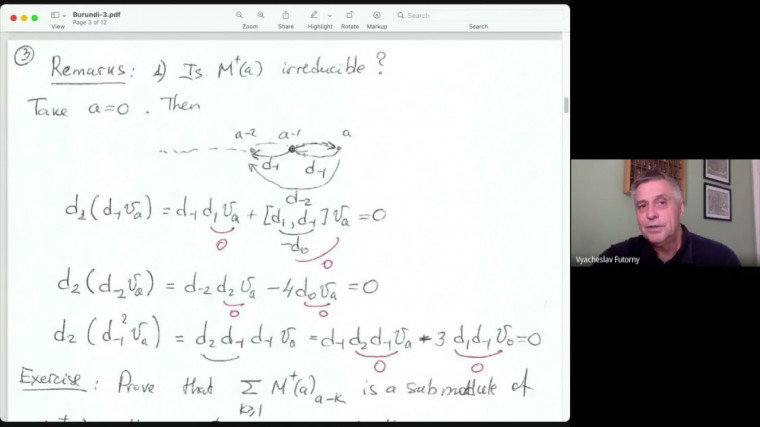 Burundi-3.pdf
Page 3 of 12
View
Zoom
Share
Highlight
Rotate
Markup
Search
Search
③ Remarks: 1) Is M⁺(a) irreducible?
Take a=0. Then
a-2 a-1 a
d₋₁ d₋₁
d₋₂
d₁(d₋₁vₐ) = d₋₁d₁vₐ + [d₁, d₋₁]vₐ = 0
0 -d₀ 0
d₂(d₋₂vₐ) = d₋₂d₂vₐ - 4d₀vₐ = 0
0 0
d₂(d₋₁²vₐ) = d₂d₋₁d₋₁v₀ = d₋₁d₂d₋₁vₐ - 3d₁d₋₁v₀ = 0
0 0
Exercise: Prove that ∑ M⁺(a)ₐ₋ₖ is a submodule of
k≥1
Vyacheslav Futorny